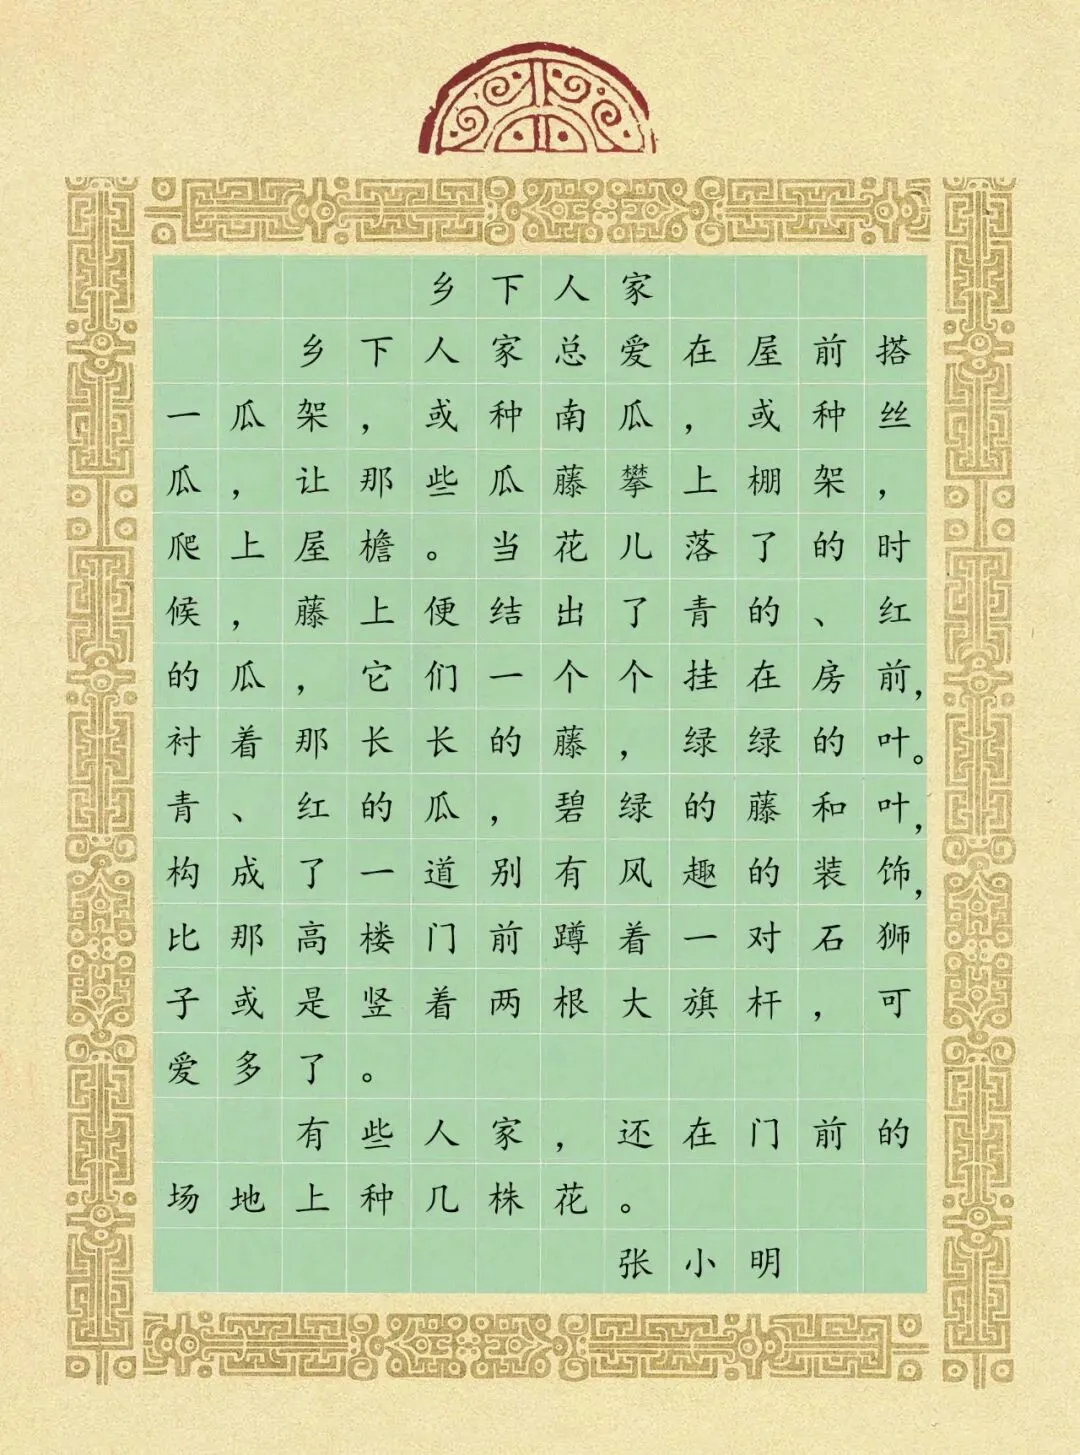 乡下人家
乡下人家总爱在屋前搭
一瓜架，或种南瓜，或种丝
瓜，让那些瓜藤攀上棚架，
爬上屋檐。当花儿落了的时
候，藤上便结出了青的、红
的瓜，它们一个个挂在房前，
衬着那长长的藤，绿绿的叶。
青、红的瓜，碧绿的藤和叶，
构成了一道别有风趣的装饰，
比那高楼门前蹲着一对石狮
子或是竖着两根大旗杆，可
爱多了。
有些人家，还在门前的
场地上种几株花。
张小明